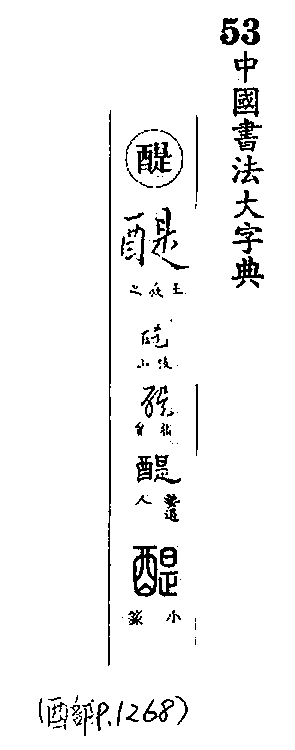 53
中國書法大字典
醍
醍
王羲之
醍
醍
醍
道人
醍
小篆
(酉部P.1268)